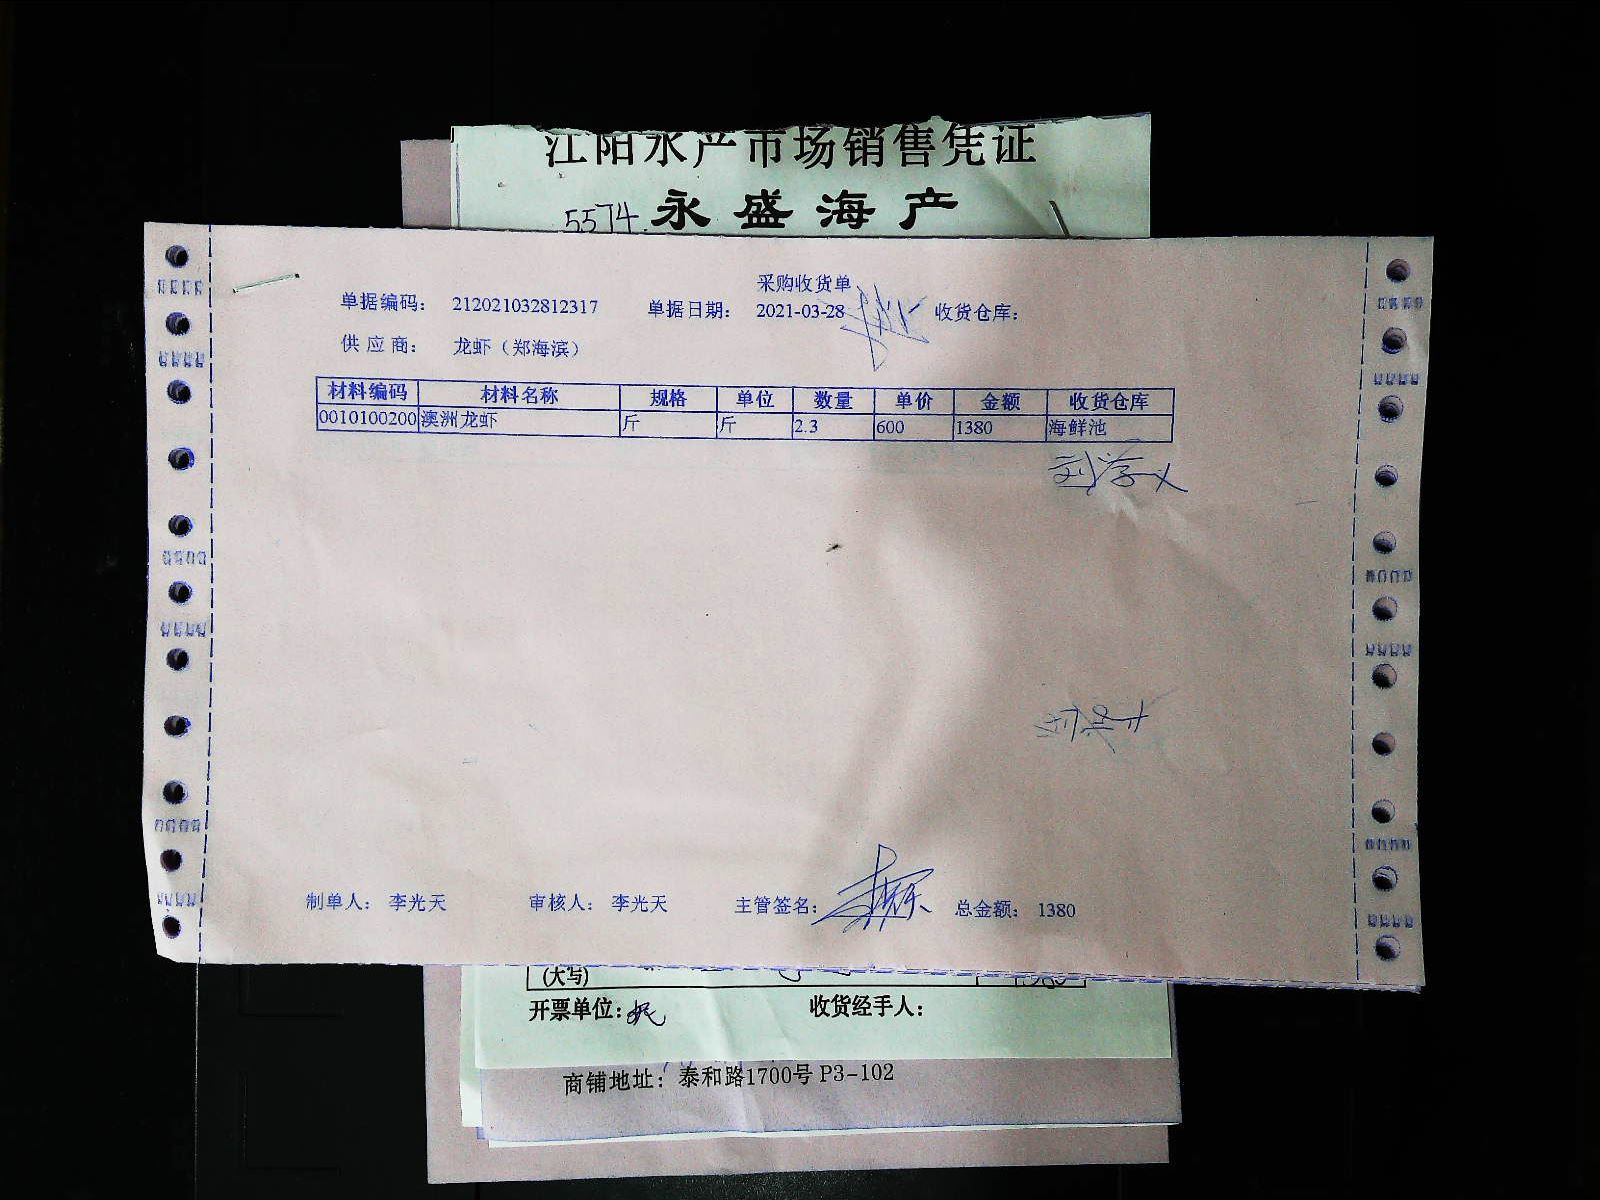 江阳水产市场销售凭证
5574. 永盛海产
采购收货单
单据编码： 212021032812317 单据日期： 2021-03-28 收货仓库：
供应商： 龙虾（郑海滨）
材料编码 材料名称 规格 单位 数量 单价 金额 收货仓库
0010100200 澳洲龙虾 斤 斤 2.3 600 1380 海鲜池
制单人： 李光天 审核人： 李光天 主管签名： 总金额： 1380
(大写)
开票单位： 收货经手人：
商铺地址： 泰和路1700号 P3-102